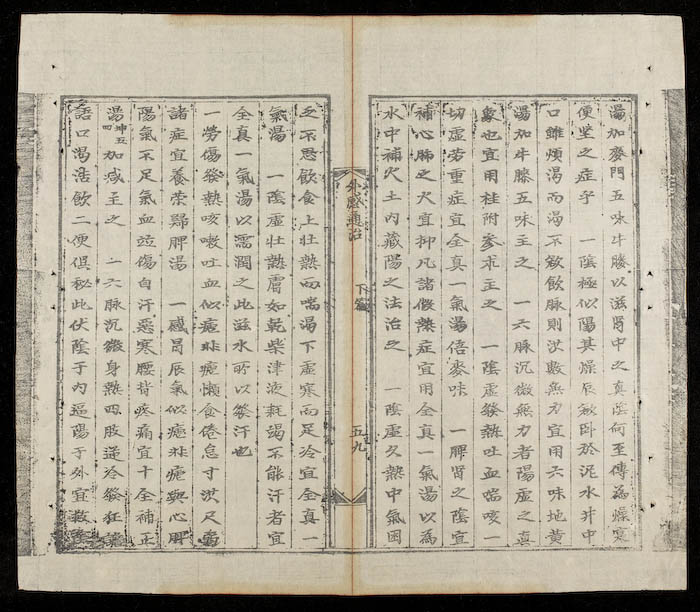 湯加麥門五味牛膝以滋腎中之真陰何至傳為燥實
便堅之症乎　一陰極似陽其燥辰欲卧於泥水井中
口雖煩渴而渴不欲飲脉則洪數無力宜用六味地黄
湯加牛膝五味主之　一六脉沉微無力者陽虚之真
象也宜用桂附参朮主之　一陰虚發熱吐血喘咳一
切虚劳重症宜全真一氣湯倍麥味　一脾腎之陰宜
補心肺之火宜抑凡諸假熱症宜用全真一氣湯以為
水中補火土内藏陽之法治之　一陰虚久熱中氣困
外感通治　下篇　五九
乏不思飲食上壮熱而喘渴下虚寒而足冷宜全真一
氣湯　一陰虚壮熱膚如乾柴津液耗竭不能汗者宜
全真一氣湯以濡潤之此滋水所以發汗也
一勞傷發熱咳嗽吐血似瘧非瘧懶食倦怠寸洪尺弱
諸症宜養荣歸脾湯　一感冒辰氣似瘧非瘧與心脾
陽氣不足氣血竝傷自汗惡寒腰背疼痛宜十全補正
湯坤五四加减主之　一六脉沉微身熱四肢逆冷發狂譫
語口渴活飲二便俱秘此伏陰于内逼陽于外宜救